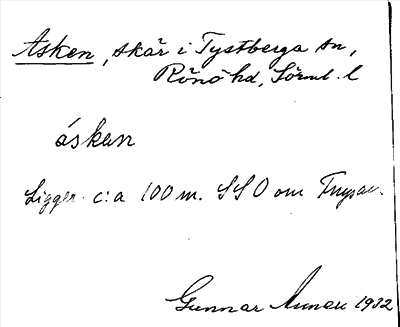 Asken, skär i Tystberga sn,
Rönö hd, Sörml. l
áskan
Ligger c:a 100 m. SSO om
Gunnar 1932